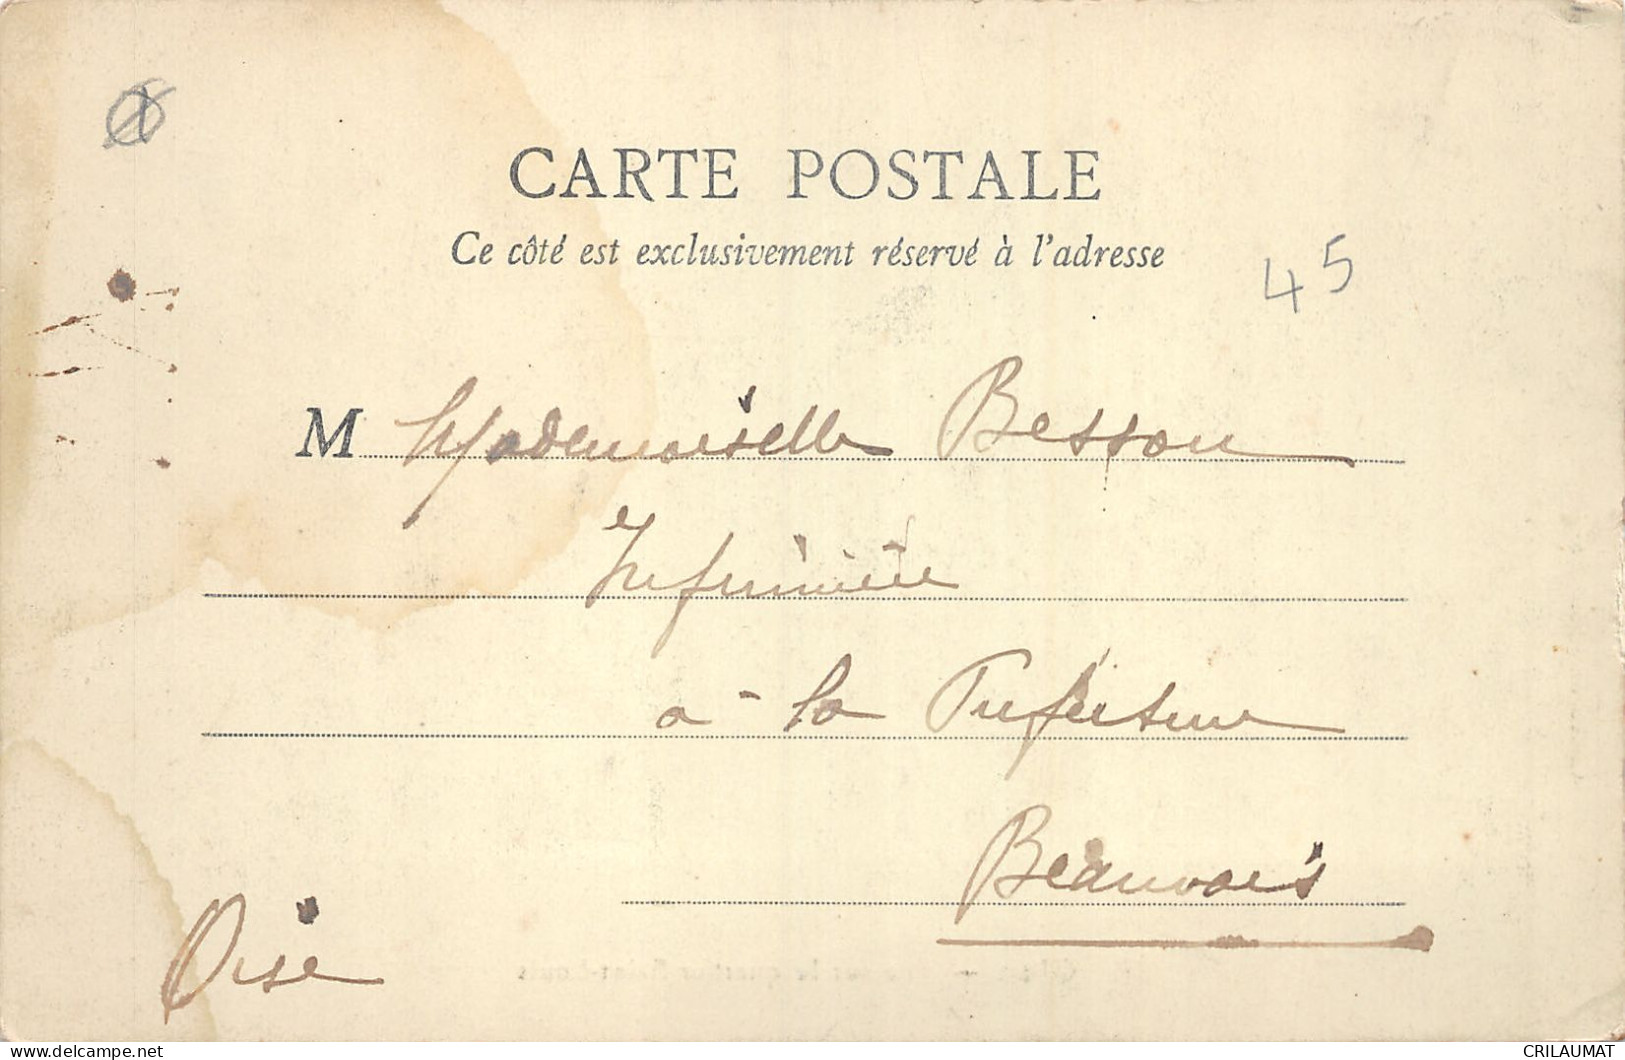 CARTE POSTALE
Ce côté est exclusivement réservé à l'adresse
45
M Mademoiselle Besson
Infirmière
à la Préfecture
Beauvais
Oise
CRILAUMAT